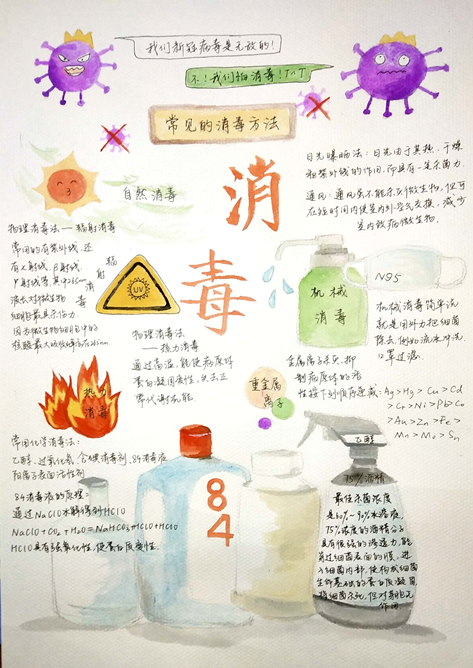 我们新冠病毒是无敌的！
不！我们怕消毒！T∧T
常见的消毒方法
消
毒
自然消毒
日光曝晒法：日光由于其热、干燥
和紫外线的作用，而具有一定杀菌力。
通风：通风虽不能杀灭微生物，但可
在短时间内使室内外空气交换，减少
室内致病微生物。
物理消毒法——辐射消毒
常用的有紫外线，还
有α射线、β射线、
γ射线等，其中265nm
波长对微生物
细胞最具杀伤力，
因为微生物细胞中的
核酸最大吸收峰为265nm。
辐
射
消
毒
UV
物理消毒法
——热力消毒
通过高温，能使病原体
蛋白凝固变性，失去正
常代谢机能。
热力
消毒
机械
消毒
N95
机械消毒简单说
就是用外力把细菌
除去，例如流水冲洗、
口罩过滤。
重金属
离子
金属离子杀灭、抑
制病原体的活
性按下列顺序递减：Ag>Hg>Cu>Cd
>Cr>Ni>Pb>Co
>Au>Zn>Fe>
Mn>Mo>Sn
常用化学消毒法：
乙醇、过氧化氢、含碘消毒剂、84消毒液
阳离子表面活性剂
84消毒液的原理：
通过NaClO水解得到HClO
NaClO+CO₂+H₂O=NaHCO₃+HClO
HClO具有强氧化性，使蛋白质变性。
84
乙醇
75%酒精
最佳杀菌浓度
是60%~90%水溶液，
75%浓度的酒精分子
具有很强的渗透力，能
穿过细菌表面的膜，进
入细菌内部，使构成细菌
生命基础的蛋白质凝固
将细菌杀死，但对芽孢无
作用。